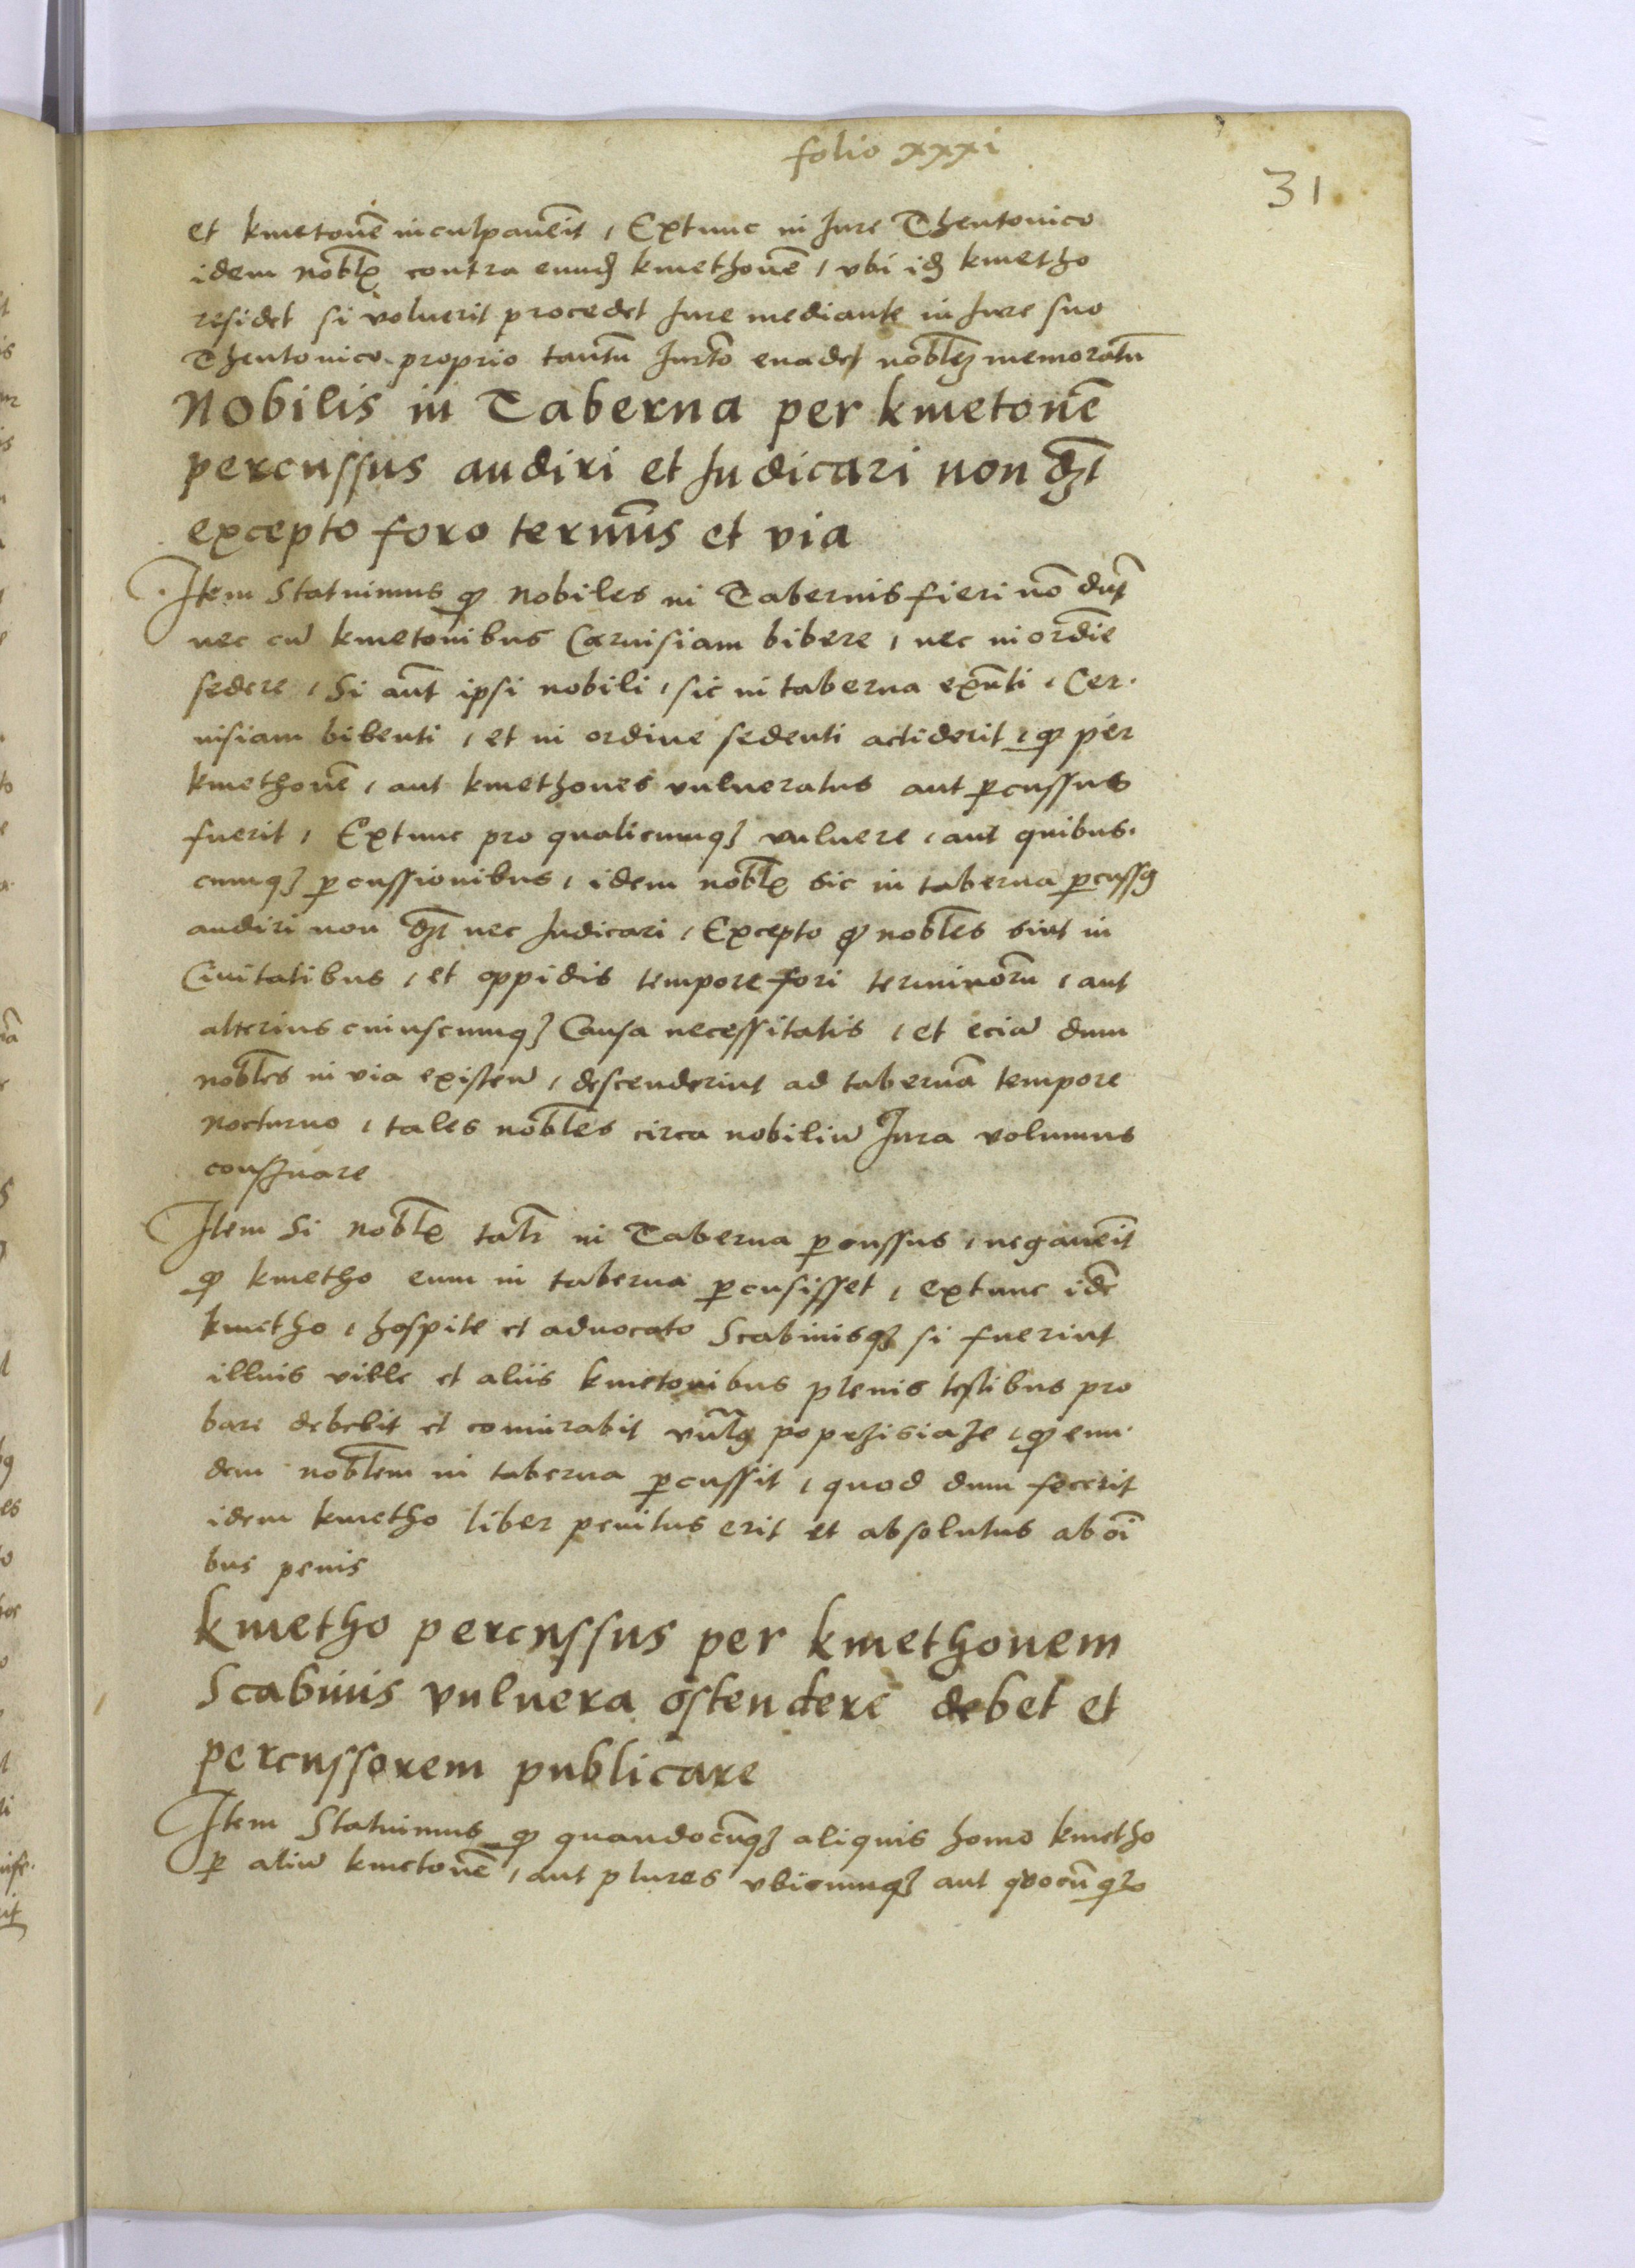 folio xxxi
31
et kmetonē inculpauēit, Extunc in Jure Theutonico
idem nobłs contra eund kmethonē, vbi id kmetho
residet si voluerit procedet Jure mediante in Jure suo
Theutonico proprio tantū Jurto euadet nobłem memoratū
Nobilis in Taberna per kmetonē
percussus audiri et Judicari non dȝt
excepto foro terminīs et via
Item Statuimus qȝ Nobiles in Tabernis fieri nō dn̄t
nec cū kmetonibus Ceruisiam bibere, nec in ordīe
sedere, Si aūt ipsi nobili, sic in taberna exn̄ti, Cer
uisiam bibenti, et in ordine sedenti acciderit, qȝ per
kmethonē, aut kmethones vulneratus aut ꝑcussus
fuerit, Extunc pro qualicumqȝ vulnere, aut quibus
cumqȝ ꝑcussionibus, idem nobłs sic in taberna ꝑcussꝰ
audiri non dȝt nec Judicari, Excepto qȝ nobłes sint in
Ciuitatibus, et oppidis tempore fori terminorū, aut
alterius cuiuscumqȝ Causa necessitatis, et eciā dum
nobłes in via existeñ, descenderint ad tabernā tempore
nocturno, tales nobłes circa nobiliū Jura volumus
conseruare
Item Si nobłs talr in Taberna ꝑcussus, negauēit
qȝ kmetho eum in taberna ꝑcusisset, extunc idē
kmetho, hospite et aduocato Scabinisqȝ si fuerint
illuis ville et aliis kmetonibus plenis testibus pro
bare debebit et comiurabit vūlgꝰ poprzisiaze, qȝ eun
dem nobłem in taberna ꝑcussit, quod dum fecerit
idem kmetho liber penitus erit et absolutus ab oī
bus penis
kmetho percussus per kmethonem
Scabinis vulnera ostendere debet et
percussorem publicare
Item Statuimus qȝ quandocūqȝ aliquis homo kmetho
ꝑ aliū kmetonē, aut plures vbicumqȝ aut quocūqȝ